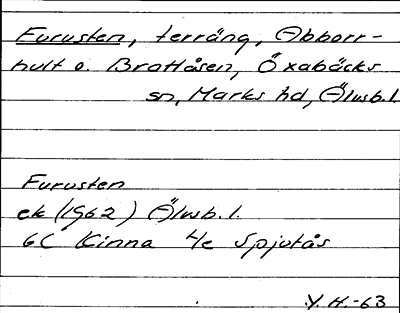 Furusten, terräng, Abborr-
hult o. Brattåsen, Öxabäcks
sn, Marks hd, Älvsb. l.
Furusten
ek (1962) Älvsb. l.
6C Kinna 4e Spjutås
Y. H. -63